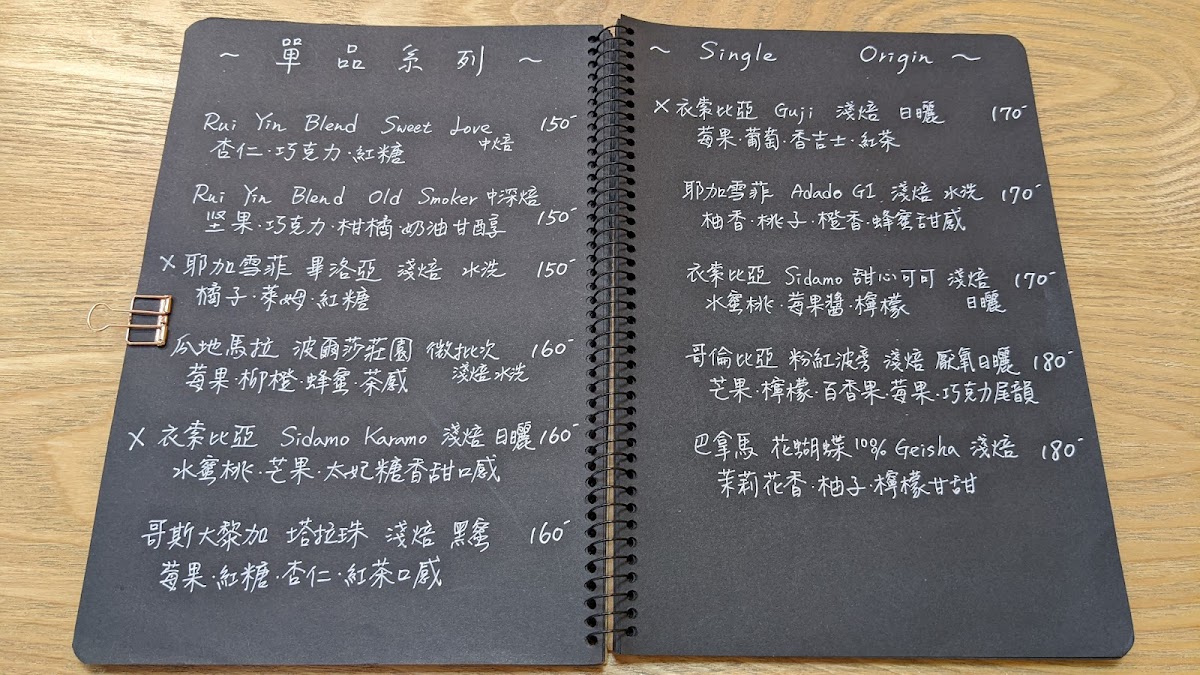 ~ 單品系列 ~
Rui Yin Blend Sweet Love 150
中焙
杏仁·巧克力·紅糖
Rui Yin Blend Old Smoker 中深焙
坚果·巧克力·柑橘·奶油甘醇 150
X 耶加雪菲 畢洛亞 淺焙 水洗 150
橘子·萊姆·紅糖
瓜地馬拉 波爾莎莊園 微批次 160
淺焙水洗
莓果·柳橙·蜂蜜·茶感
X 衣索比亞 Sidamo Karamo 淺焙 日曬 160
水蜜桃·芒果·太妃糖香甜口感
哥斯大黎加 塔拉珠 淺焙 黑蜜 160
莓果·紅糖·杏仁·紅茶口感
~ Single Origin ~
X 衣索比亞 Guji 淺焙 日曬 170
莓果·葡萄·香吉士·紅茶
耶加雪菲 Adado G1 淺焙 水洗 170
柚香·桃子·橙香·蜂蜜甜感
衣索比亞 Sidamo 甜心可可 淺焙 170
日曬
水蜜桃·莓果醬·檸檬
哥倫比亞 粉紅波旁 淺焙 厭氧日曬 180
芒果·檸檬·百香果·莓果·巧克力尾韻
巴拿馬 花蝴蝶 10% Geisha 淺焙 180
茉莉花香·柚子·檸檬甘甜